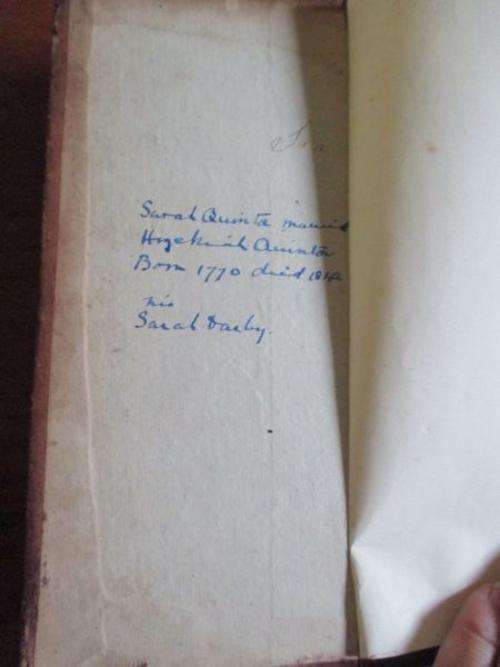 Sarah Quinton married
Hezekiah Quinton
Born 1770 died
nie
Sarah Darby.